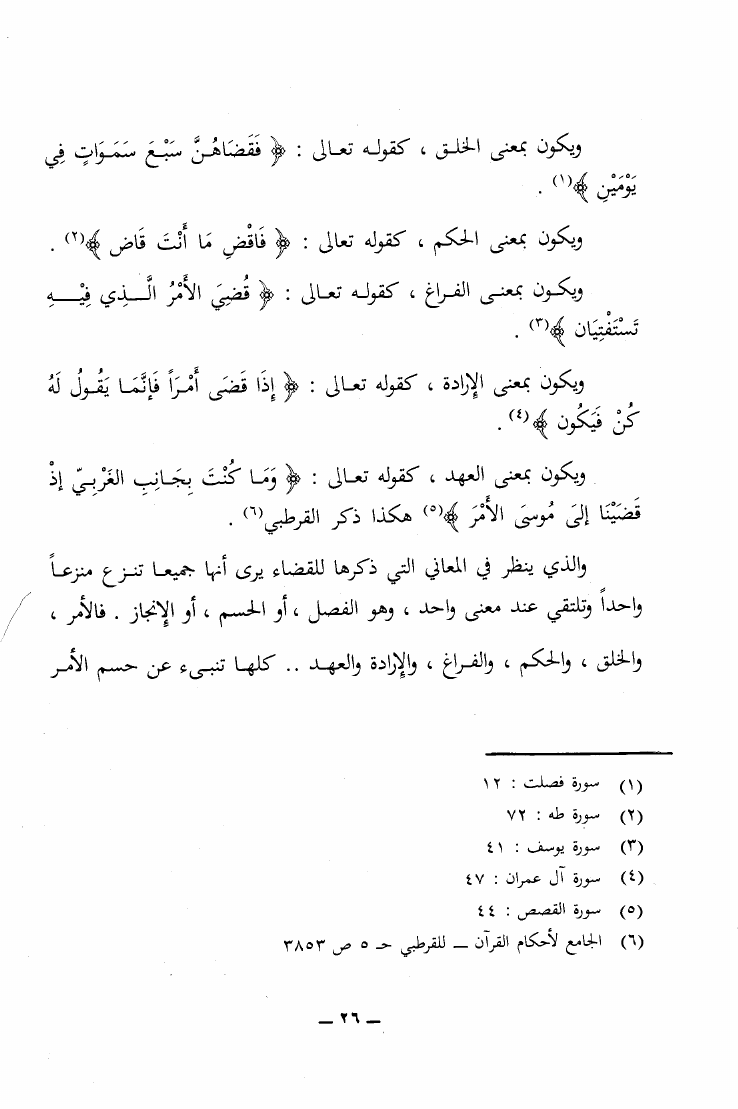 ويكون بمعنى الخلق ، كقوله تعالى : ﴿ فَقَضَاهُنَّ سَبْعَ سَمَوَاتٍ فِي
يَوْمَيْنِ ﴾(١) .
ويكون بمعنى الحكم ، كقوله تعالى : ﴿ فَاقْضِ مَا أَنْتَ قَاض ﴾(٢) .
ويكون بمعنى الفراغ ، كقوله تعالى : ﴿ قُضِيَ الأَمْرُ الَّذِي فِيْهِ
تَسْتَفْتِيَان ﴾(٣) .
ويكون بمعنى الإرادة ، كقوله تعالى : ﴿ إِذَا قَضَى أَمْرَاً فَإِنَّمَا يَقُولُ لَهُ
كُنْ فَيَكُون ﴾(٤) .
ويكون بمعنى العهد ، كقوله تعالى : ﴿ وَمَا كُنْتَ بِجَانِبِ الغَرْبِيّ إذْ
قَضَيْنَا إلَىَ مُوسىَ الأَمْرَ ﴾(٥) هكذا ذكر القرطبي(٦) .
والذي ينظر في المعاني التي ذكرها للقضاء يرى أنها جميعا تنزع منزعاً
واحداً وتلتقي عند معنى واحد ، وهو الفصل ، أو الحسم ، أو الإنجاز . فالأمر ،
والخلق ، والحكم ، والفراغ ، والإرادة والعهد .. كلها تنبىء عن حسم الأمر
(١) سورة فصلت : ١٢
(٢) سورة طه : ٧٢
(٣) سورة يوسف : ٤١
(٤) سورة آل عمران : ٤٧
(٥) سورة القصص : ٤٤
(٦) الجامع لأحكام القرآن — للقرطبي حـ ٥ ص ٣٨٥٣
— ٢٦ —